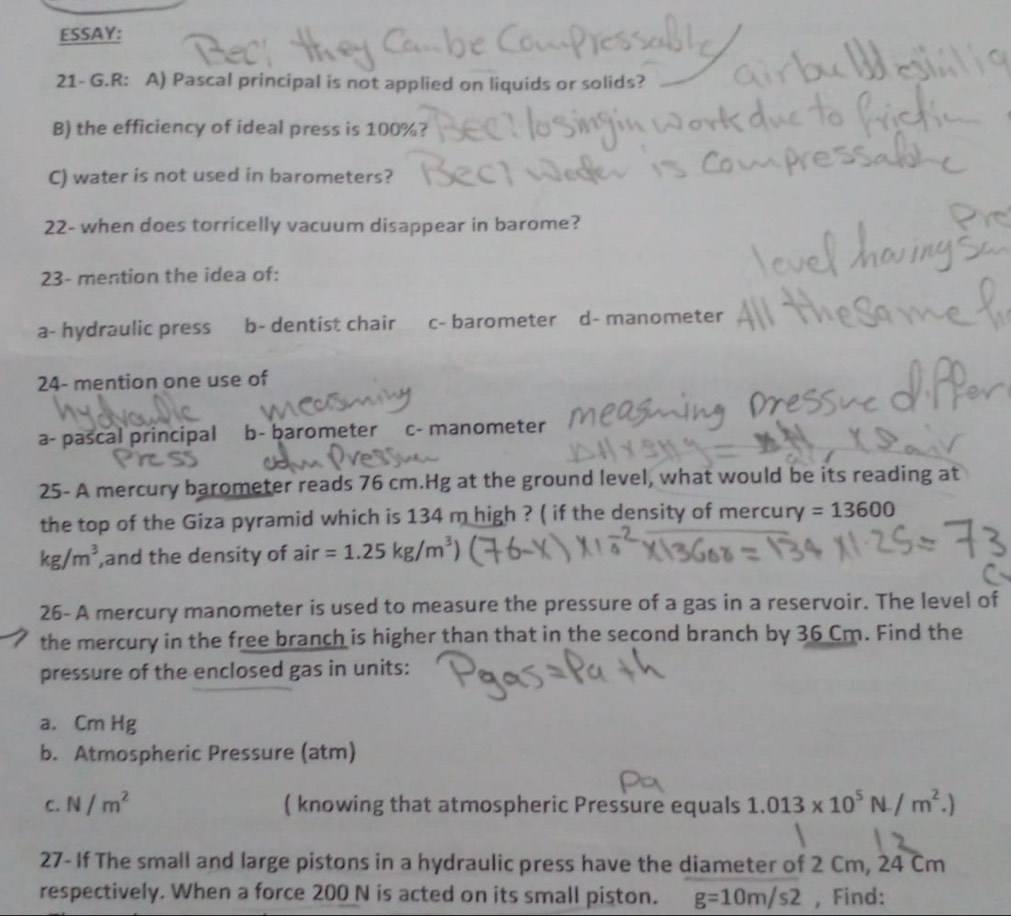 ESSAY:
Bec: they Can be Compressable
21- G.R: A) Pascal principal is not applied on liquids or solids?
B) the efficiency of ideal press is 100%? Bec: losing in work due to friction
C) water is not used in barometers? Bec: water is compressable
22- when does torricelly vacuum disappear in barome?
23- mention the idea of:
level having
a- hydraulic press b- dentist chair c- barometer d- manometer All the same
24- mention one use of
hydraulic measuring measuring pressure differ
a- pascal principal b- barometer c- manometer
Press atm Pressure
25- A mercury barometer reads 76 cm.Hg at the ground level, what would be its reading at
the top of the Giza pyramid which is 134 m high ? ( if the density of mercury = 13600
kg/m³,and the density of air = 1.25 kg/m³) (76-X) X10⁻² X13600 = 134 X1.25 = 73
26- A mercury manometer is used to measure the pressure of a gas in a reservoir. The level of
the mercury in the free branch is higher than that in the second branch by 36 Cm. Find the
pressure of the enclosed gas in units: Pgas=Pa+h
a. Cm Hg
b. Atmospheric Pressure (atm)
Pa
c. N / m² ( knowing that atmospheric Pressure equals 1.013 x 10⁵ N / m².)
1 12
27- If The small and large pistons in a hydraulic press have the diameter of 2 Cm, 24 Cm
respectively. When a force 200 N is acted on its small piston. g=10m/s2 , Find: